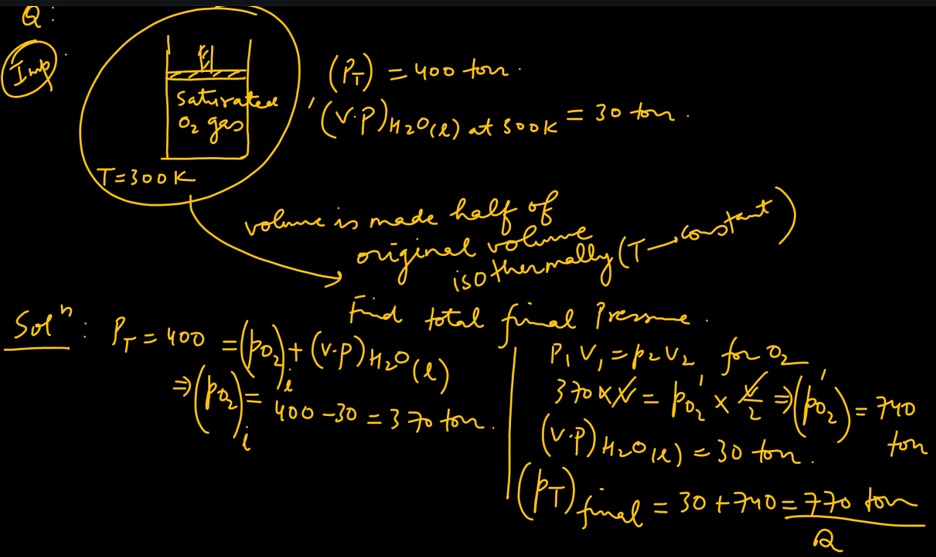 Q:
Imp
saturated
O₂ gas
T=300K
(P_T) = 400 torr.
(V.P)_H₂O(l) at 300K = 30 torr.
volume is made half of
original volume
isothermally (T→constant)
Find total final Pressure.
Solⁿ: P_T = 400 = (p_O₂)_i + (v.p)_H₂O(l)
⇒ (p_O₂)_i = 400 - 30 = 370 torr.
P₁V₁ = P₂V₂ for O₂
370 × V = p'_O₂ × V/2 ⇒ (p'_O₂) = 740
torr
(V.P)_H₂O(l) = 30 torr.
(p_T)_final = 30 + 740 = 770 torr